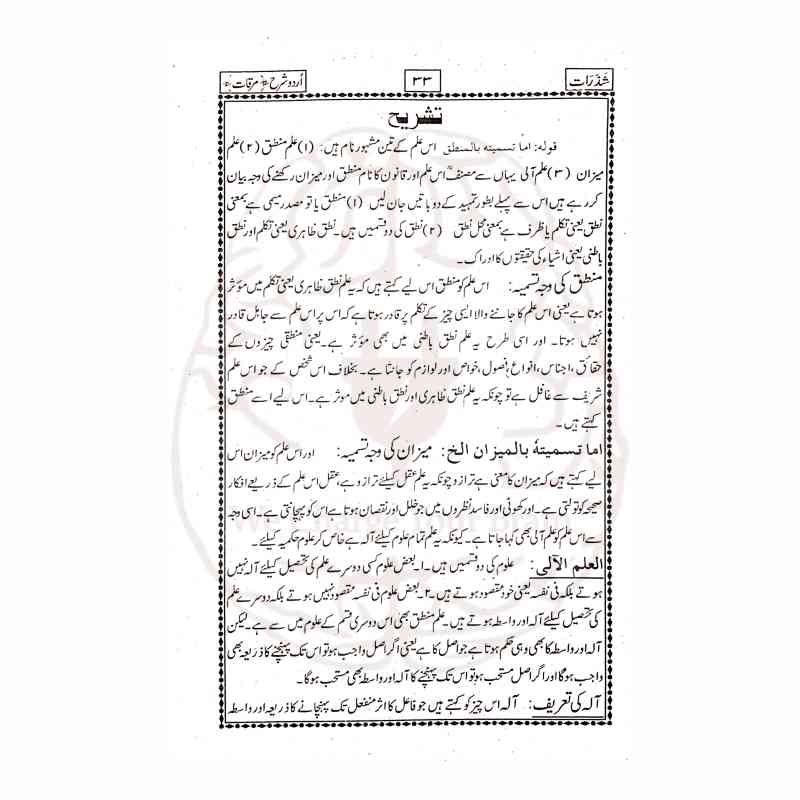 شذرات
۳۳
اُردو شرح مرقات
تشریح
قولہ: اما تسمیتہ بالمنطق اس علم کے تین مشہور نام ہیں: (۱) علم منطق (۲) علم
میزان (۳) علم آلی یہاں سے مصنفؒ اس علم اور قانون کا نام منطق اور میزان رکھنے کی وجہ بیان
کر رہے ہیں اس سے پہلے بطور تمہید کے دو باتیں جان لیں (۱) منطق یا تو مصدر میمی ہے بمعنی
نطق یعنی تکلم یا ظرف ہے بمعنی محل نطق (۲) نطق کی دو قسمیں ہیں۔ نطق ظاہری یعنی تکلم اور نطق
باطنی یعنی اشیاء کی حقیقتوں کا ادراک۔
منطق کی وجہ تسمیہ: اس علم کو منطق اس لیے کہتے ہیں کہ یہ علم نطق ظاہری یعنی تکلم میں مؤثر
ہوتا ہے یعنی اس علم کا جاننے والا ایسی چیز کے تکلم پر قادر ہوتا ہے کہ اس پر اس علم سے جاہل قادر
نہیں ہوتا۔ اور اسی طرح یہ علم نطق باطنی میں بھی مؤثر ہے۔ یعنی منطقی چیزوں کے
حقائق، اجناس، انواع، فصول، خواص اور لوازم کو جانتا ہے۔ بخلاف اس شخص کے جو اس علم
شریف سے غافل ہے تو چونکہ یہ علم نطق ظاہری اور نطق باطنی میں موثر ہے۔ اس لیے اسے منطق
کہتے ہیں۔
اما تسمیتہٗ بالمیزان الخ: میزان کی وجہ تسمیہ: اور اس علم کو میزان اس
لیے کہتے ہیں کہ میزان کا معنی ہے ترازو چونکہ یہ علم عقل کیلئے ترازو ہے، عقل اس علم کے ذریعے افکار
صحیحہ کو تولتی ہے۔ اور کھوٹی اور فاسد نظروں میں جو خلل اور نقصان ہوتا ہے اس کو پہچانتی ہے۔ اسی وجہ
سے اس علم کو علم آلی بھی کہا جاتا ہے۔ کیونکہ یہ علم تمام علوم کیلئے آلہ ہے خاص کر علوم حکمیہ کیلئے۔
العلم الآلی: علوم کی دو قسمیں ہیں۔ ۱۔ بعض علوم کسی دوسرے علم کی تحصیل کیلئے آلہ نہیں
ہوتے بلکہ فی نفسہ یعنی خود مقصود ہوتے ہیں۔ ۲۔ بعض علوم فی نفسہ مقصود نہیں ہوتے بلکہ دوسرے علم
کی تحصیل کیلئے آلہ اور واسطہ ہوتے ہیں۔ علم منطق بھی اس دوسری قسم کے علوم میں سے ہے۔ لیکن
آلہ اور واسطہ کا بھی وہی حکم ہوتا ہے جو اصل کا ہے یعنی اگر اصل واجب ہو تو اس تک پہنچنے کا ذریعہ بھی
واجب ہوگا اور اگر اصل مستحب ہو تو اس تک پہنچنے کا آلہ اور واسطہ بھی مستحب ہوگا۔
آلہ کی تعریف: آلہ اس چیز کو کہتے ہیں جو فاعل کا اثر منفعل تک پہنچانے کا ذریعہ اور واسطہ